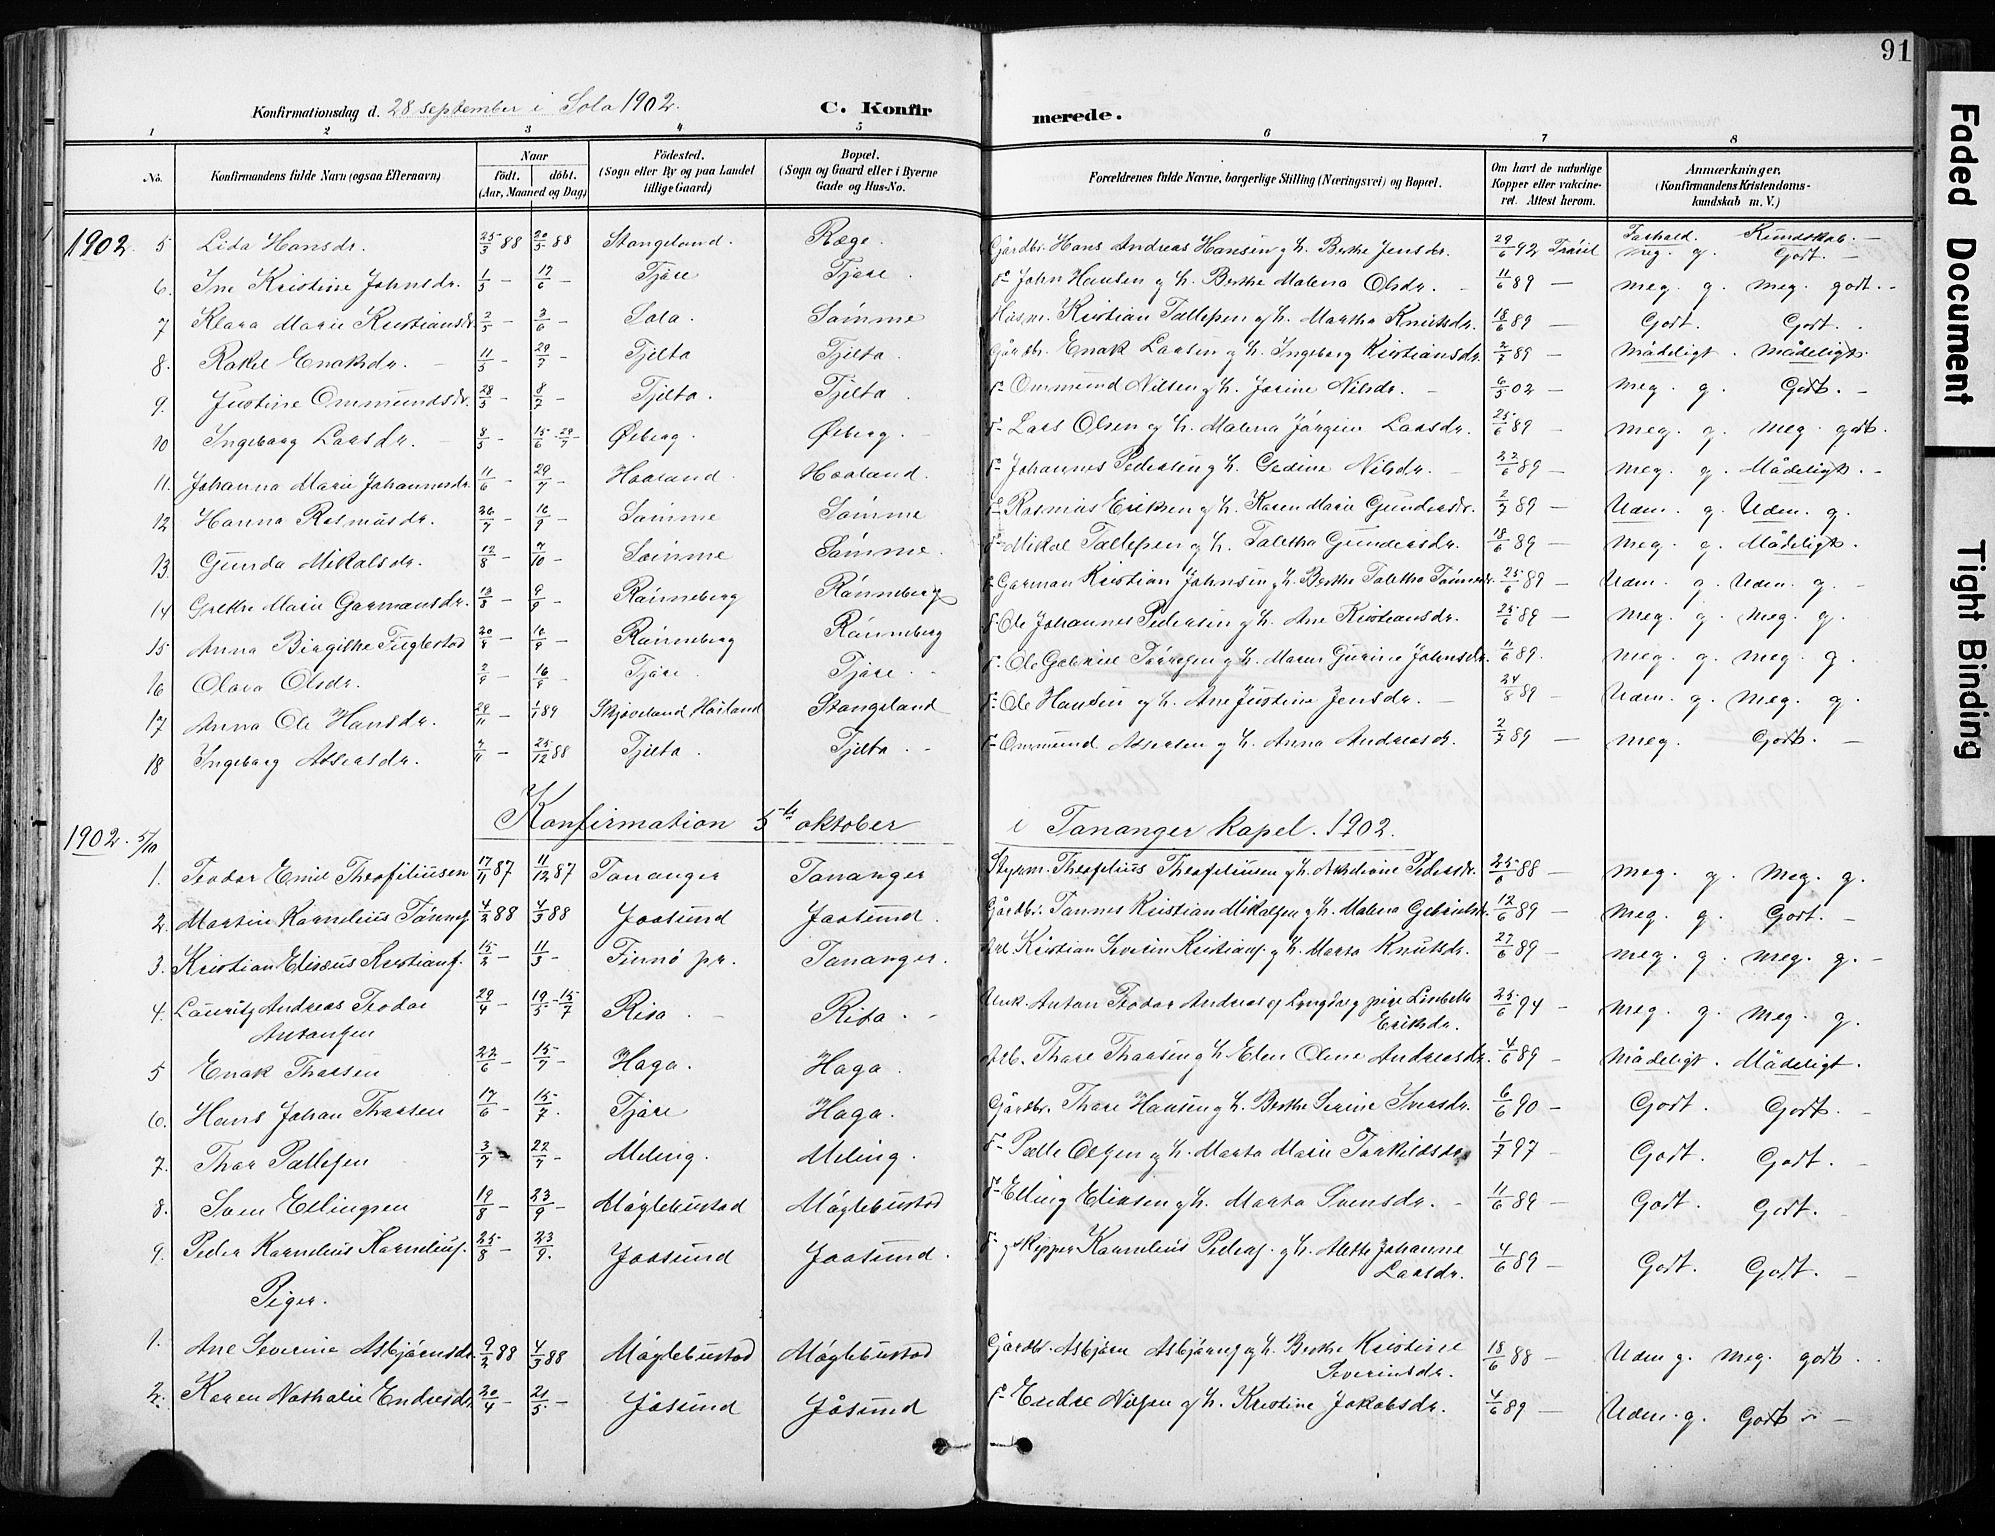 91
Konfirmationsdag d. 28 september i Sola 1902. C. Konfirmerede.
1 2 3 4 5 6 7 8
No. Konfirmandens fulde Navn (ogsaa Efternavn) Naar födt. döbt. (Aar, Maaned og Dag) Födested. (Sogn eller By og paa Landet tillige Gaard) Bopæl. (Sogn og Gaard eller i Byerne Gade og Hus-No. Forældrenes fulde Navne, borgerlige Stilling (Næringsvei) og Bopæl. Om havt de naturlige Kopper eller vakcineret. Attest herom. Anmærkninger. (Konfirmandens Kristendomskundskab m. V.)
Forhold. Kundskab.
1902. 5 Lida Hansdr. 25/3 88 20/5 88 Stangeland. Ræge. Gårdbr. Hans Andreas Hansen og h. Berthe Jensdr. 29/6 92 Meg. g. Godt. —
6. Ine Kristine Johnsdr. 1/5 — 17/6 — Tjåre Tjåre. d⁰ John Hansen og h. Berthe Malena Olsdr. — 11/6 89 — Meg. g. Meg. godt. -
7 Klara Marie Kristiansdr. 2/5 — 3/6 — Sola. Sømme Husm. Kristian Tollefsen og h. Martha Knutsdr. 18/6 89 — Godt. Godt.
8. Rakel Enoksdr. 11/5 — 29/7 — Tjelta Tjelta. Gårdbr. Enok Larsen og h. Ingeborg Kristiansdr. 2/7 89 — Mådeligt. Mådeligt.
9. Justine Ommundsdr. 28/5 — 8/7 — Tjelta. Tjelta. d⁰ Ommund Nilsen og h. Jorine Nilsdr. — 6/5 02 — Meg. g. Godt. —
10 Ingeborg Larsdr. 8/5 — 15/6 - 29/7 Øiberg. Øiberg. d⁰ Lars Olsen og h. Malena Jørgine Larsdr. 25/6 89 — Meg. g. Meg. godt.
11. Johanna Marie Johannesdr. 11/6 — 29/7 — Haaland. Haaland. d⁰ Johannes Pedersen og h. Gedine Nilsdr. — 27/6 89 — Meg. g. Mådeligt. -
12 Hanna Rasmusdr. 26/7 — 16/9 — Sømme Sømme d⁰ Rasmus Eriksen og h. Karen Marie Gundersdr. 2/7 89 — Udm. g. Udm. g.
13. Gunda Mikalsdr. 12/8 — 7/10 — Sømme Sømme. d⁰ Mikal Tollefsen og h. Taletha Gundersdr. 18/6 89 — Meg. g. Mådeligt.
14 Grethe Marie Garmansdr. 13/8 — 9/9 — Rønneberg Rønneberg d⁰ Garman Kristian Johnsen og h. Berthe Taletha 25/6 89 — Udm. g. Udm. g. —
15 Anna Birgithe Fuglestad 16/9 — Rønneberg Rønneberg d⁰ Ole Johannes Pedersen og h. Ane Kristiansdr. 25/6 89 — Meg. g. Meg. g.
16 Olava Olsdr. 2/9 — 16/9 — Tjåre. Tjåre. d⁰ Ole Gabriel og h. Maren Gurine Johnsdr. 11/6 89. Meg. g. Meg. g.
17 Anna Ole Hansdr. — 1/1 89 Skjæveland Høiland Stangeland d⁰ Ole Hansen og h. Ane Justine Jensdr. — 24/8 89 Udm. g. Meg. g.
18 Ingeborg Assersdr. 7/11 — 25/12 88 Tjelta. Tjelta. d⁰ Ommund Assersen og h. Anna Andreasdr. 2/7 89 — Meg. Godt. —
1902. 5/10 Konfirmation 5te oktober i Tananger kapel. 1902.
1. Teodor Emil Theofiliussen 17/11 87 11/12 87 Tananger Tananger Styrm. Theofilius Theofiliussen og h. Pedersdr. 25/6 88 — Meg. g. Meg. g.
2. Martin Kornelius Tønnes. 4/2 88 4/3 88 Joasund Joasund. Gårdbr. Tønnes Kristian Mikalsen og h. Malena Gabrielsdr. 12/6 89 — Meg. g. Godt. —
3. Kristian Elisæus Kristians. 15/2 — 11/3 — Finnø pr. Tananger. Arb. Kristian Severin Kristians. og h. Marta Knutsdr. 27/6 89 — Meg. g. Meg. g. —
4. Lauritz Andreas Teodor Antonsen 29/4 — 19/5 - 15/7 Risa. — Risa. — Unk. Anton Teodor Andreas pige Lisbeth Eriksdr. 25/6 94 — Meg. g. Meg. g.
5 Enok Thorsen 22/6 — 15/7 — Haga. Haga. Arb. Thore Thorsen og h. Elen Oline Andreasdr. 4/6 89 — Mådeligt. Mådeligt.
6. Hans Johan Thorsen 17/6 — 15/7 — Tjåre Haga. Gårdbr. Thore Hansen og h. Berthe Serine Sversdr. 6/6 90 — Godt. Godt. —
7. Thor Pallesen 3/7 — 22/7 — Meling. Meling. d⁰ Palle Olsen og h. Marta Marie Torkildsdr. 1/7 97 — Godt. Godt. —
8. Sven Ellingsen 19/8 — 23/9 — Møglebustad Møglebustad d⁰ Elling Eliasen og h. Marta Svensdr. — 11/6 89 — Godt. Godt. —
9. Peder Kornelius Kornelius. 25/8 — 23/9. Joasund Joasund. d⁰ og Skipper Kornelius Peders. og h. Alette Johanne Larsdr. 4/6 89 — Godt. Godt. —
Piger.
1. Ane Severine Asbjørnsdr. 9/2 88 4/3 88 Møglebustad Møglebustad Gårdbr. Asbjørn Asbjørns. og h. Berthe Kristine Severinsdr. 18/6 88 — Udm g. Meg. godt.
2. Karen Nathalie Endresdr. 20/4 — 21/5 — Jåsund Jåsund d⁰ Endre Nilsen og h. Kristine Jakobsdr. 4/6 89 — Udm. g. Godt —
Faded Document
Tight Binding